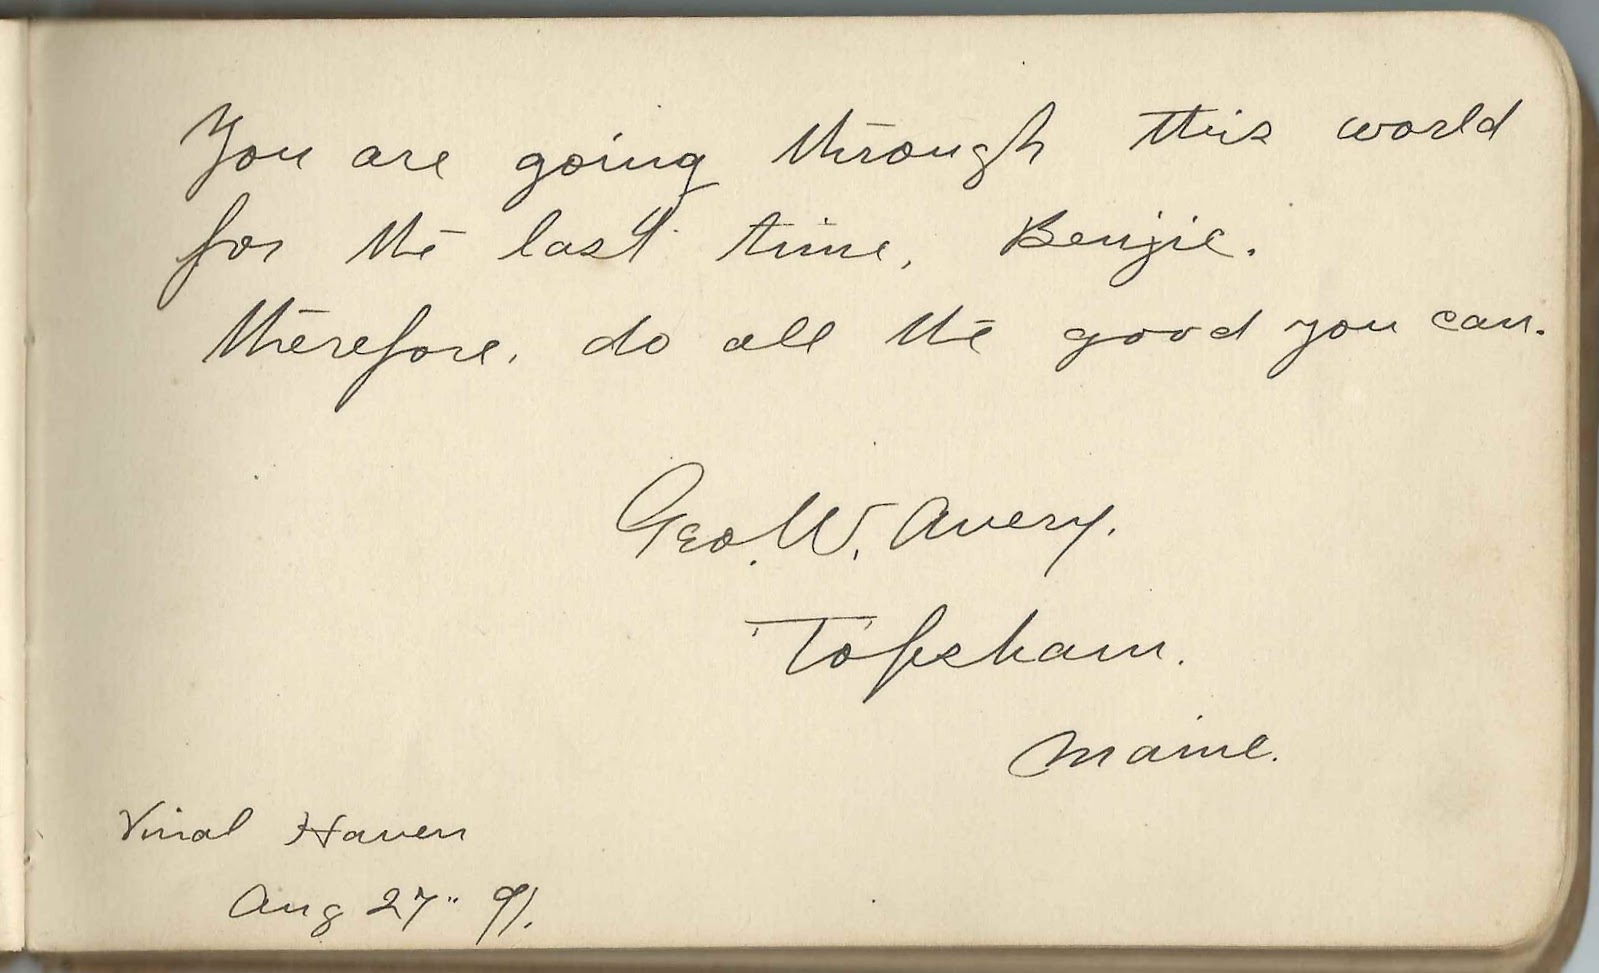 You are going through this world
for the last time, Benjie.
therefore, do all the good you can.
Geo. W. Avery.
Topsham.
Maine.
Vinal Haven
Aug 27" 91.